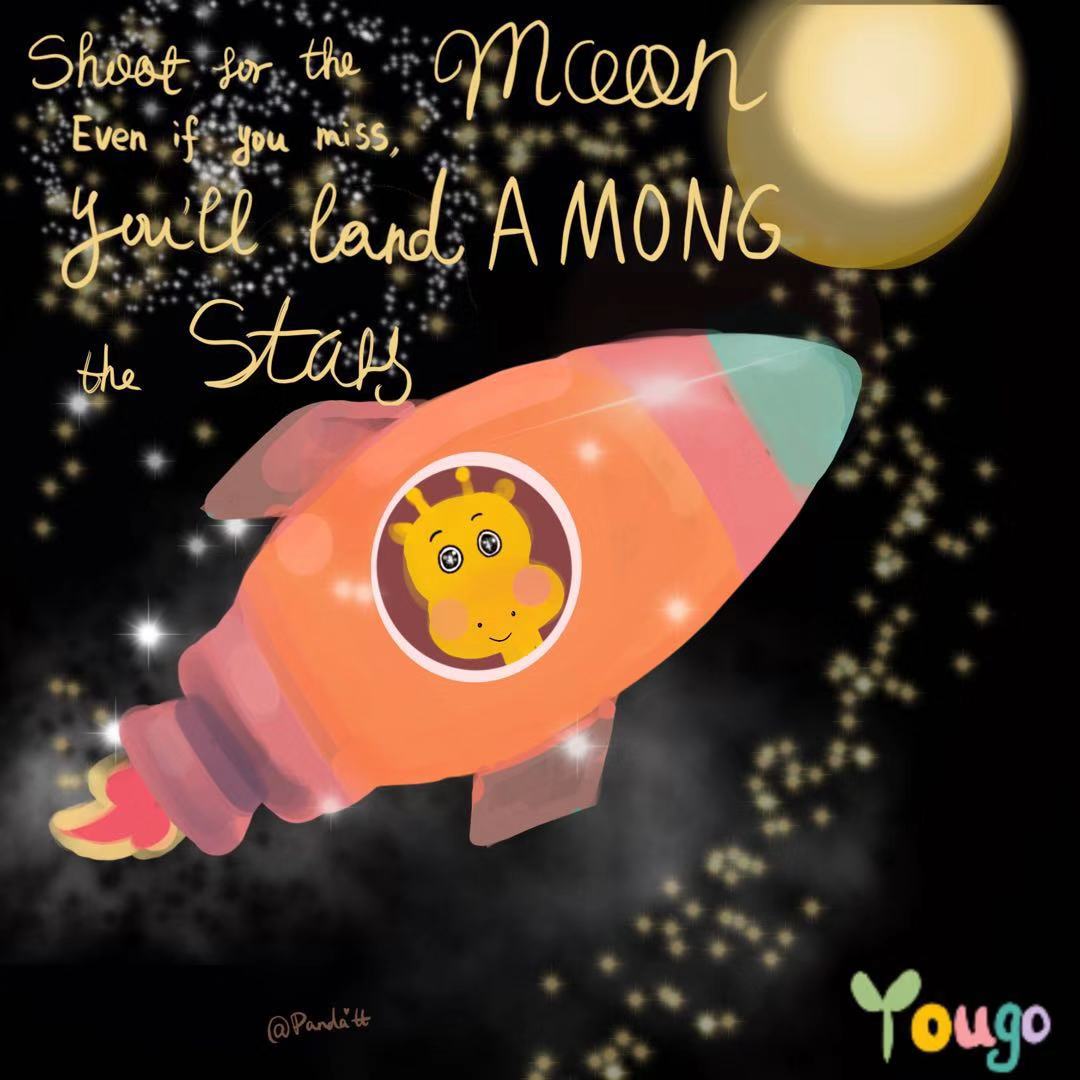 Shoot for the Moon
Even if you miss,
You'll land AMONG
the Stars
@Panda
Yougo